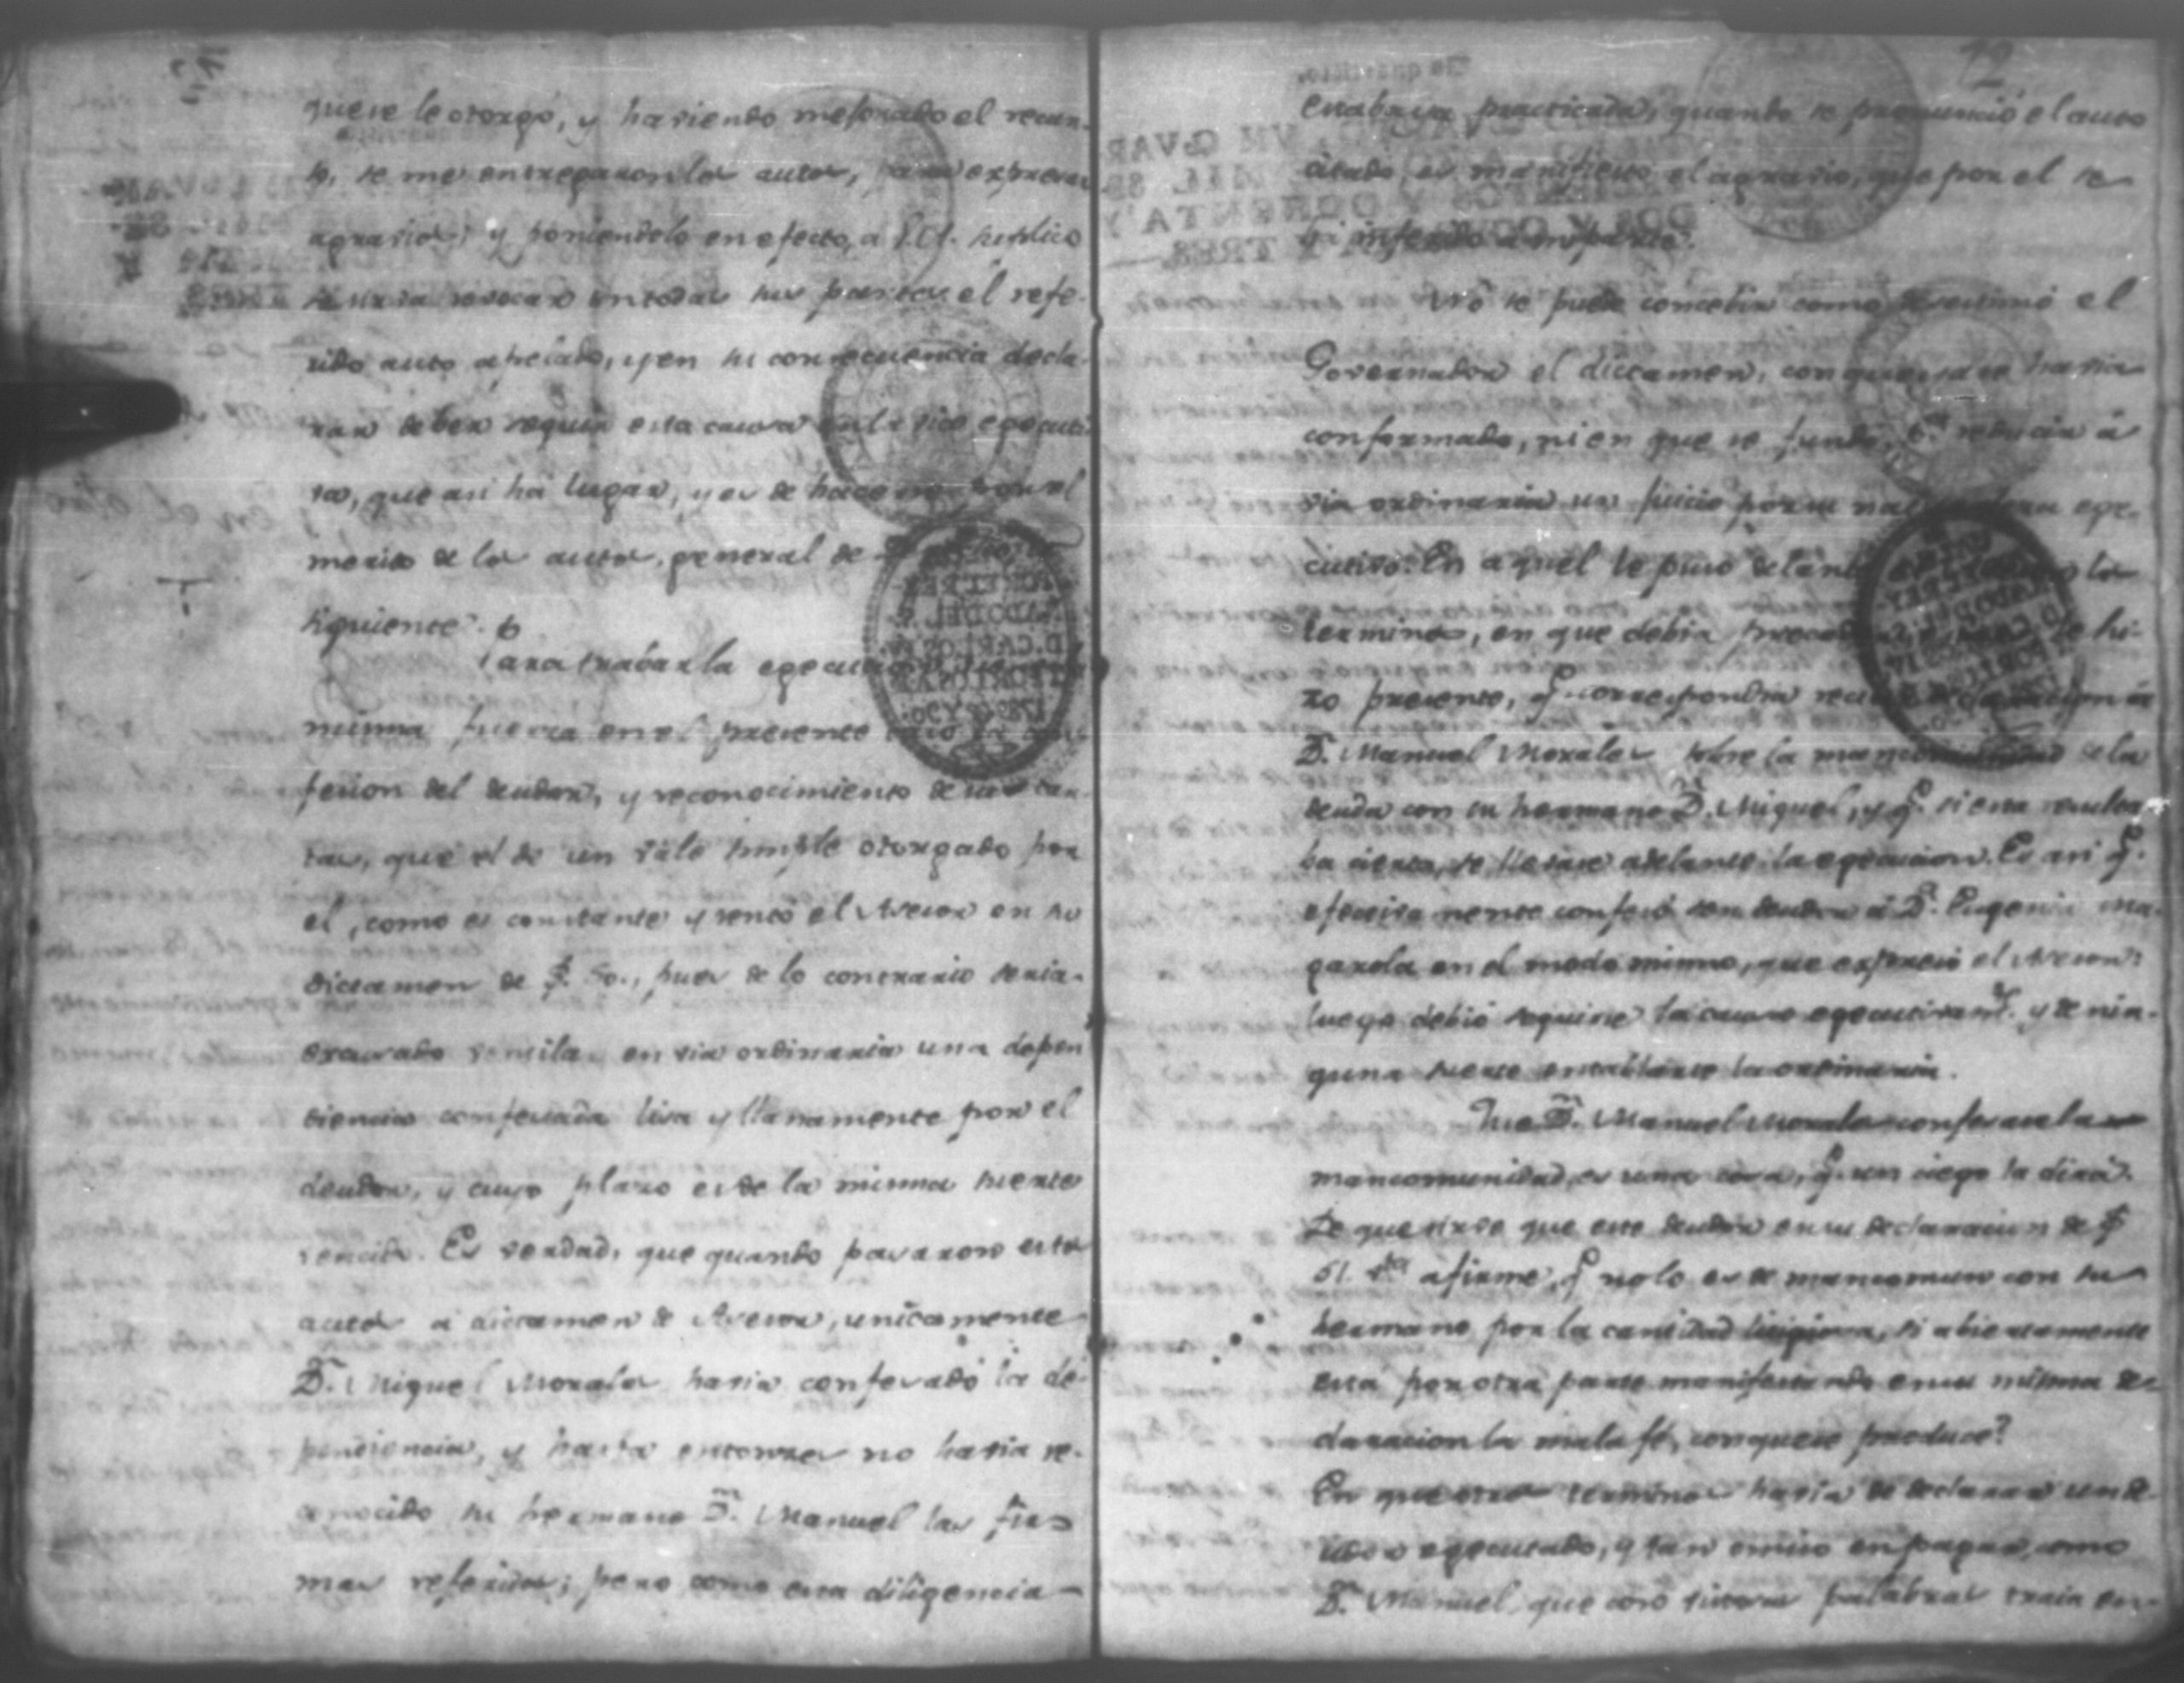 que se le otorgó, y haviendo mejorado el recur-
so, se me entregaron los autos, para expresar
agravios; y poniendolo en efecto, a V.A. suplico
se sirva revocar en todas sus partes el refe-
rido auto apelado, y en su consecuencia decla-
rar deber seguir esta causa en la via egecuti-
va, que asi ha lugar, y es de hacerse por el
merito de los autos, general de
siguiente.
Para trabar la egecucion
misma fuerza en el presente caso la con-
fesion del deudor, y reconocimiento de sus car-
tas, que el de un vale simple otorgado por
el, como es constante y sentó el Asesor en su
dictamen de f. 50., pues de lo contrario seria
excusado ventilar en via ordinaria una depen
diencia confesada lisa y llanamente por el
deudor, y cuyo plazo es de la misma suerte
vencido. Es verdad, que quando pasaron estos
autos a dictamen de Asesor, unicamente
Dn. Miguel Morales havia confesado la de-
pendiencia, y hasta entonces no havia re-
conocido su hermano Dn. Manuel las fir-
mas referidas; pero como esta diligencia
12
estaba ya practicada, quando se pronunció el auto
citado, es manifiesto el agravio, que por el se
ha inferido a mi parte.
No se puede concebir como reasumió el
Governador el dictamen, con que ya se havia
conformado, ni en que se fundó pa. reducir á
via ordinaria un juicio por su naturaleza ege-
cutivo. En aquel se puso delante los
terminos, en que debia proceder se hi-
zo presente, q. correspondia recibir declaracion á
Dn. Manuel Morales sobre la mancomunidad de la
deuda con su hermano Dn. Miguel, y q. si esta resulta-
ba cierta, se llevase adelante la egecucion. Es asi q.
efectivamente confesó ser deudor á Dn. Eugenio Ma-
garola en el modo mismo, que expresó el Asesor:
luego debió seguirse la causa egecutivamte. y de nin-
guna suerte entablarse la ordinaria.
Que Dn. Manuel Morales confesase la
mancomunidad, es una cosa, q. un ciego la dirá.
De que sirve que este deudor en su declaracion de f
51. afirme, q. no lo es de mancomun con su
hermano por la cantidad litigiosa, si abiertamente
esta por otra parte manifestando en su misma de-
claracion la mala fé, con que se produce?
En que otros terminos havia de declarar un de-
udor egecutado, y tan omiso en pagar, como
Dn. Manuel, que palabras